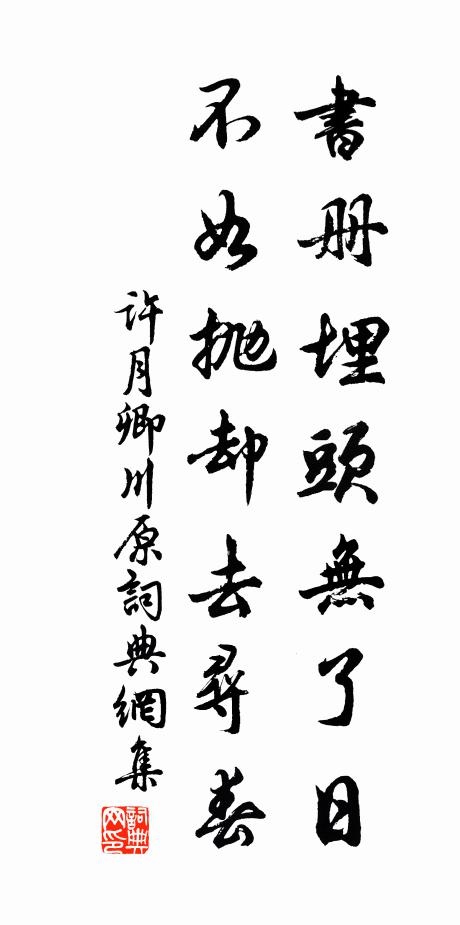 書册埋頭無了日
不如抛却去尋春
許月卿川原詞典網集
詞典网印